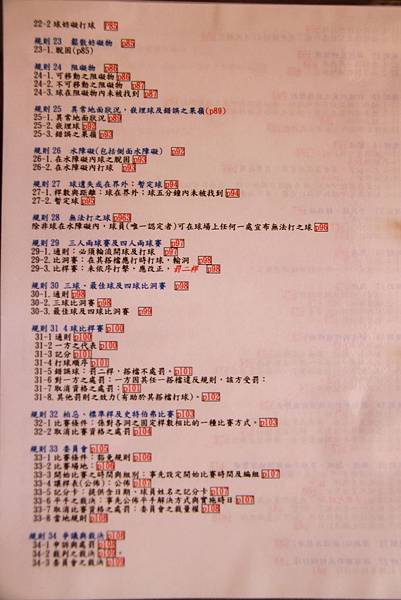 22-2 球妨礙打球 p85
規則 23 鬆散妨礙物 p85
23-1.脫困(p85)
規則 24 阻礙物 p86
24-1.可移動之阻礙物 p86
24-2.不可移動之阻礙物 p87
24-3.球在阻礙物內未被找到 p87
規則 25 異常地面狀況，嵌埋球及錯誤之果嶺(p89)
25-1.異常地面狀況 p89
25-2.嵌埋球 p92
25-3.錯誤之果嶺 p92
規則 26 水障礙(包括側面水障礙) p92
26-1.在水障礙內球之脫困 p93
26-2.在水障礙內打球 p93
規則 27 球遺失或在界外；暫定球 p94
27-1.桿數與距離；球在界外；球五分鐘內未被找到 p94
27-2.暫定球 p95
規則 28 無法打之球 p96
除非球在水障礙內，球員(唯一認定者)可在球場上任何一處宣布無法打之球 p96
規則 29 三人兩球賽及四人兩球賽 p97
29-1.通則：必須輪流開球及打球 p97
29-2.比洞賽：在其搭檔應打時打球，輸洞 p98
29-3.比桿賽：未依序打擊，應改正，罰二桿 p98
規則 30 三球、最佳球及四球比洞賽 p98
30-1.通則 p98
30-2.三球比洞賽 p98
30-3.最佳球及四球比洞賽 p99
規則 31 4 球比桿賽 p100
31-1 通則 p100
31-2 一方之代表 p100
31-3 記分 p101
31-4 打球順序 p101
31-5 錯誤球：罰二桿，搭檔不處罰。p101
31-6 對一方之處罰：一方因其任一搭檔違反規則，該方受罰：
31-7 取消資格之處罰：p101
31-8.其他罰則之效力(有助於其搭檔打球)。p102
規則 32 柏忌、標準桿及史特伯弗比賽 p103
32-1 比賽條件：係對各洞之固定桿數相比的一種比賽方式。p103
32-2 取消比賽資格之處罰 p104
規則 33 委員會 p105
33-1 比賽條件：豁免規則 p106
33-2 比賽場地：p106
33-3 開始比賽之時間與組別：事先設定開始比賽時間及編組 p107
33-4 讓桿表(公佈)：公佈 p107
33-5 記分卡：提供含日期，球員姓名之記分卡 p107
33-6 平手之裁決：事先公佈平手解決方式與實施時日 p107
33-7 取消比賽資格之處罰：委員會之裁量權 p108
33-8 當地規則 p108
規則 34 爭議與裁決 p108
34-1 申訴與處罰 p108
34-2 裁判之裁決 p109。
34-3 委員會之裁決 p109